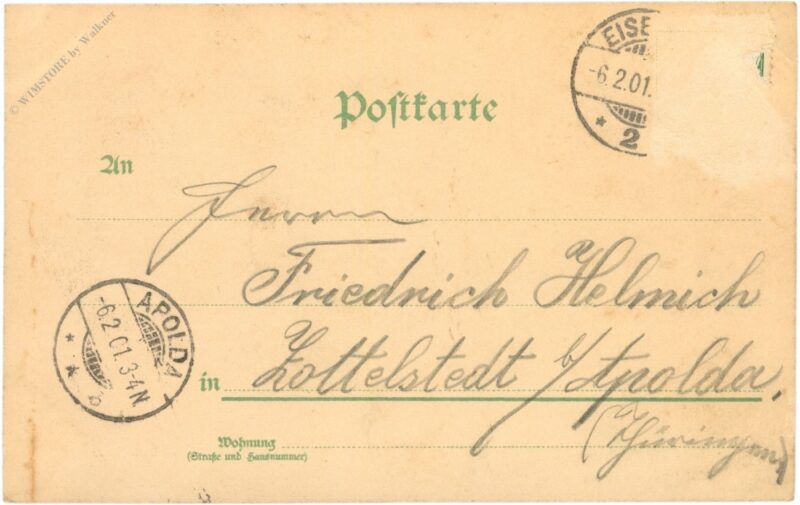 © WIMSTORE by Walkner
EISE
-6.2.01.
* 2
Postkarte
An
Herrn
Friedrich Helmich
in Zottelstedt b/Apolda,
(Thüringen)
Wohnung
(Straße und Hausnummer)
APOLDA
-6.2.01.3-4N.
* *